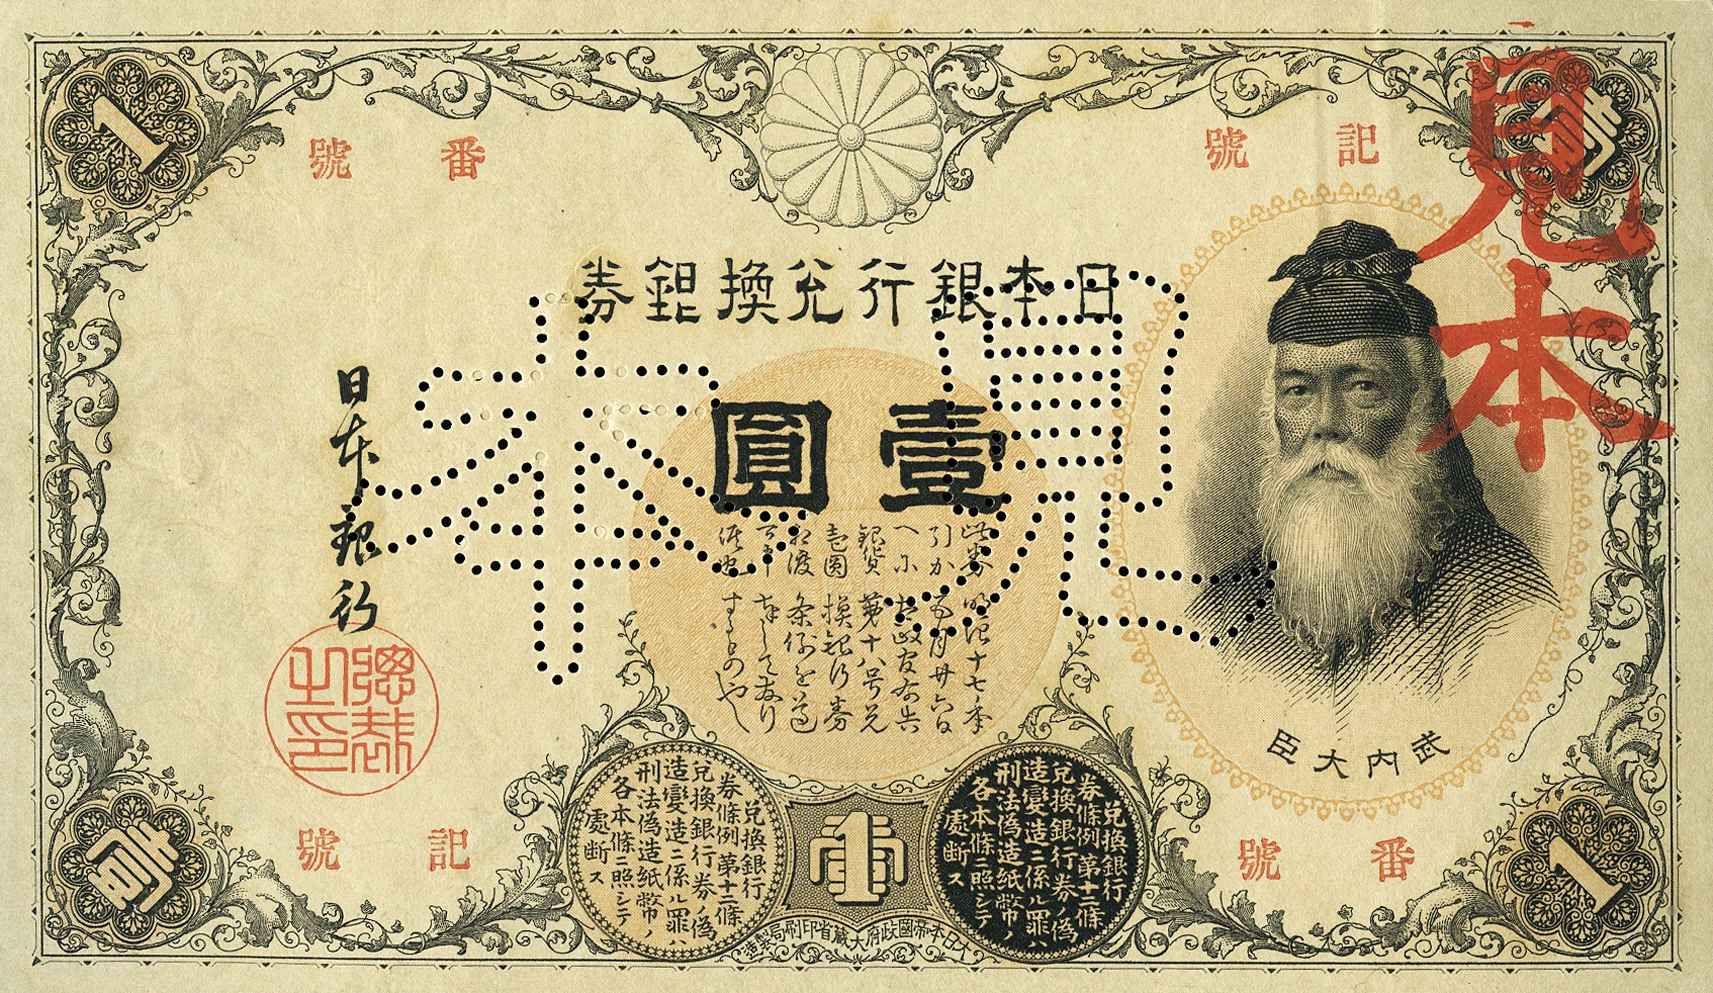 見本
記號
番號
日本銀行兌換銀券
見本
壹圓
此券
引か
へ尓
銀貨
壹圓
相渡
可申
候也
明治十七年
五月廿六日
太政官布告
第十八号兌
換銀行券
条例を遵
奉して發行
するものや
武内大臣
日本銀行
總裁之印
兌換銀行
券條例第十二條
兌換銀行券ノ偽
造變造ニ係ル罪ハ
刑法偽造紙幣ノ
各本條ニ照シテ
處断ス
兌換銀行
券條例第十二條
兌換銀行券ノ偽
造變造ニ係ル罪ハ
刑法偽造紙幣ノ
各本條ニ照シテ
處断ス
番號
記號
1
壹
壹
1
壹
大日本帝國政府大蔵省印刷局製造